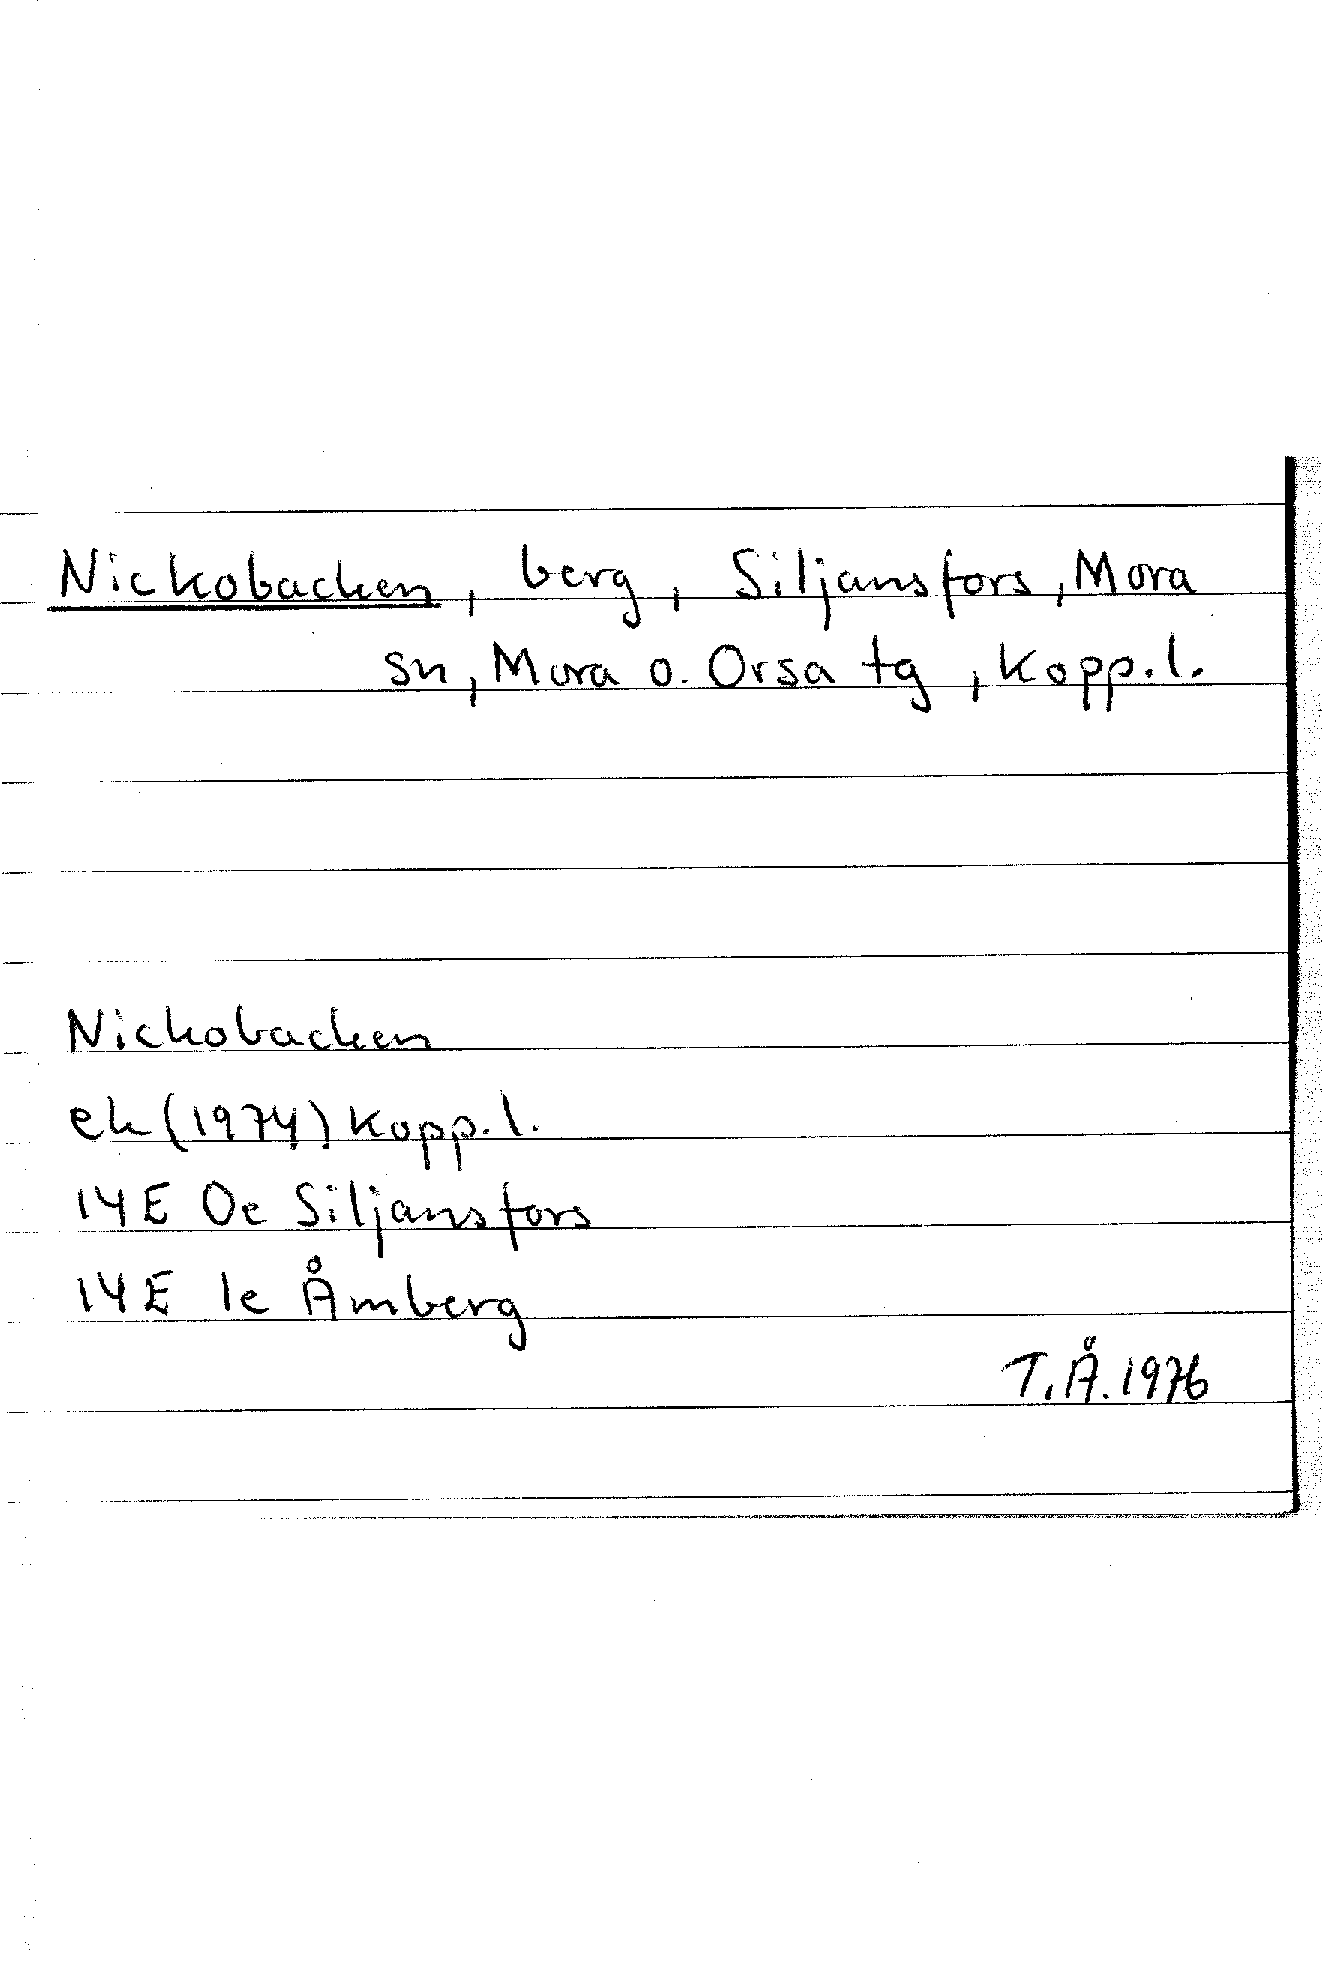 Nickobacken, berg, Siljansfors, Mora
sn, Mora o. Orsa tg, Kopp.l.
Nickobacken
ek (1974) Kopp.l.
14E 0e Siljansfors
14E 1e Åmberg
T.Å. 1976